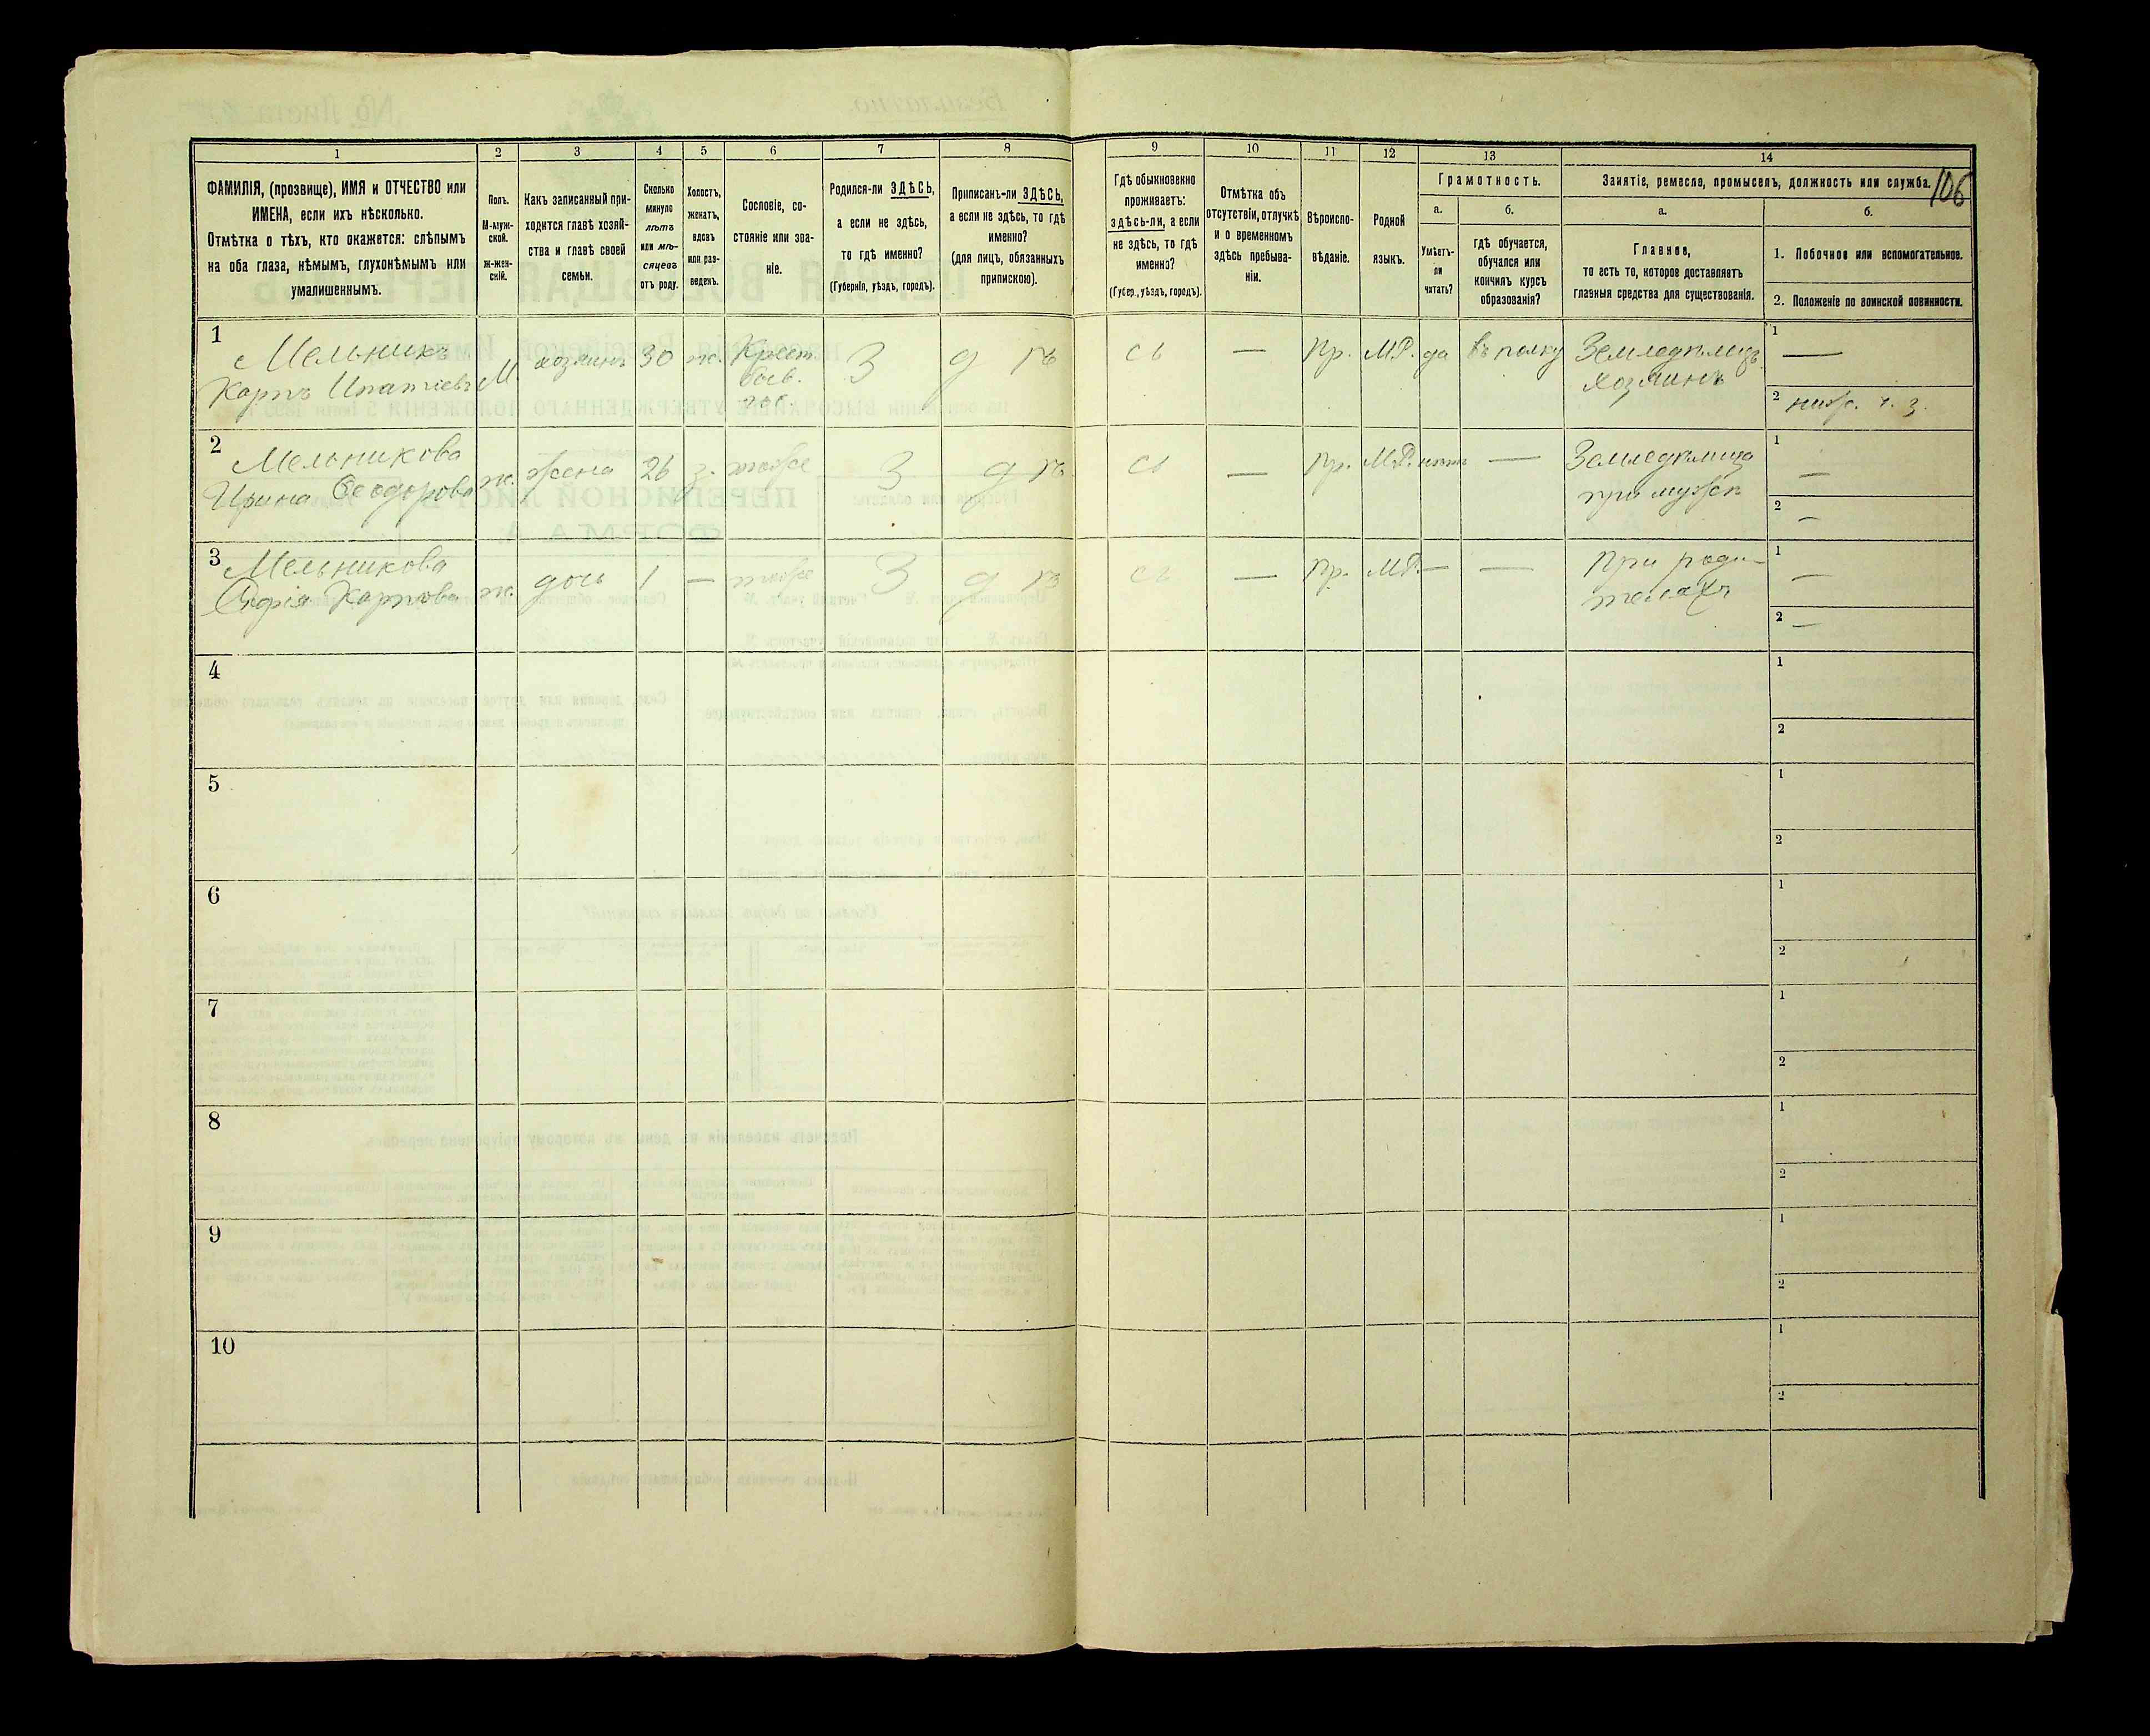 106
1 2 3 4 5 6 7 8 9 10 11 12 13 14
ФАМИЛІЯ, (прозвище), ИМЯ и ОТЧЕСТВО или
ИМЕНА, если ихъ нѣсколько.
Отмѣтка о тѣхъ, кто окажется: слѣпымъ
на оба глаза, нѣмымъ, глухонѣмымъ или
умалишеннымъ.
Полъ.
М-муж-
ской.
ж-жен-
скій.
Какъ записанный при-
ходится главѣ хозяй-
ства и главѣ своей
семьи.
Сколько
минуло
лѣтъ
или мѣ-
сяцевъ
отъ роду.
Холостъ,
женатъ,
вдовъ
или раз-
веденъ.
Сословіе, со-
стояніе или зва-
ніе.
Родился-ли ЗДѢСЬ,
а если не здѣсь,
то гдѣ именно?
(Губернія, уѣздъ, городъ).
Приписанъ-ли ЗДѢСЬ,
а если не здѣсь, то гдѣ
именно?
(для лицъ, обязанныхъ
припискою).
Гдѣ обыкновенно
проживаетъ:
здѣсь-ли, а если
не здѣсь, то гдѣ
именно?
(Губер., уѣздъ, городъ).
Отмѣтка объ
отсутствіи, отлучкѣ
и о временномъ
здѣсь пребыва-
ніи.
Вѣроиспо-
вѣданіе.
Родной
языкъ.
Грамотность.
а.
Умѣетъ-
ли
читать?
б.
гдѣ обучается,
обучался или
кончилъ курсъ
образованія?
Занятіе, ремесло, промыселъ, должность или служба.
а.
Главное,
то есть то, которое доставляетъ
главныя средства для существованія.
б.
1. Побочное или вспомогательное.
2. Положеніе по воинской повинности.
1
Мельникъ
Карпъ Ипатіевъ
М. хозяинъ 30 ж. Крест.
быв.
З
Пр. М.Р. да въ полку Земледѣлецъ
хозяинъ
1 —
2 нижн. ч. з.
2
Мельникова
Ирина Ѳеодорова
ж. жена 26 з. тоже З
— Пр. М.Р. нѣтъ — Земледѣлица
при мужѣ
1 —
2 —
3
Мельникова
Софія Карпова
ж. дочь 1 — тоже З
— Пр. М.Р. — — При роди-
теляхъ
1 —
2 —
4
1
2
5
1
2
6
1
2
7
1
2
8
1
2
9
1
2
10
1
2